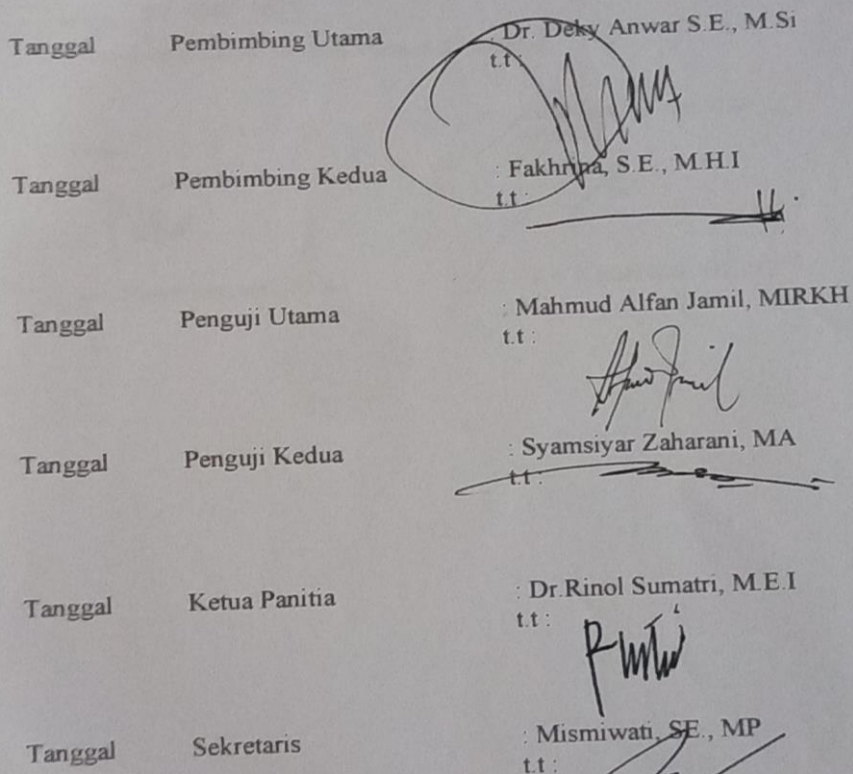 Tanggal Pembimbing Utama : Dr. Deky Anwar S.E., M.Si
t.t :
Tanggal Pembimbing Kedua : Fakhrina, S.E., M.H.I
t.t :
Tanggal Penguji Utama : Mahmud Alfan Jamil, MIRKH
t.t :
Tanggal Penguji Kedua : Syamsiyar Zaharani, MA
t.t :
Tanggal Ketua Panitia : Dr.Rinol Sumatri, M.E.I
t.t :
Tanggal Sekretaris : Mismiwati, SE., MP
t.t :